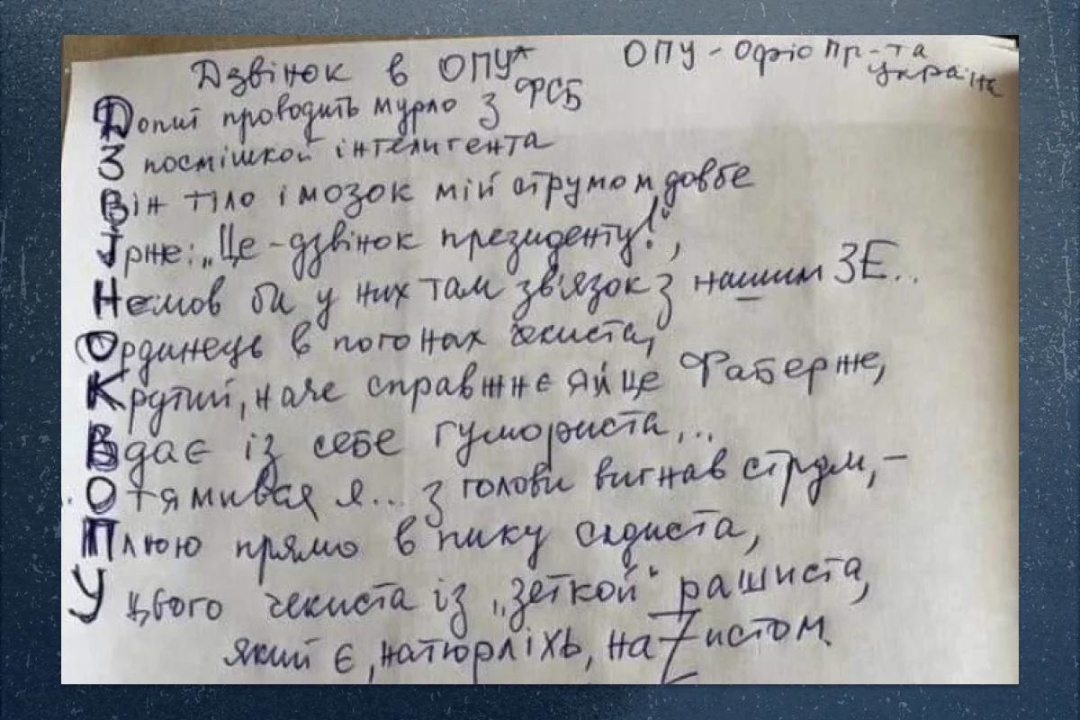 Дзвінок в ОПУ*
ОПУ - Офіс Пр-та
України
Допит проводить мурло з ФСБ
З посмішкой інтелигента
Він тіло і мозок мій струмом довбе
Ірже: „Це - дзвінок президенту!",
Немов би у них там зв'язок з нашим ЗЕ..
Ординець в погонах чекиста,
Крутий, наче справжнє яйце Фаберже,
Вдає із себе гумориста...
Отямився я... з голови вигнав струм, –
Плюю прямо в пику садиста,
У цього чекиста із „зеткой" рашиста,
який є, натюрліхь, наZистом.